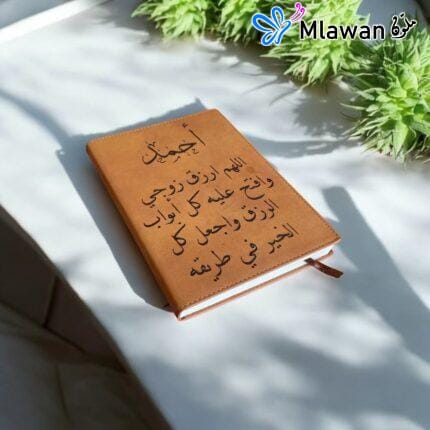 Mlawan ملون
أحمد
اللهم ارزق زوجي
وافتح عليه كل ابواب
الرزق واجعل كل
الخير في طريقه